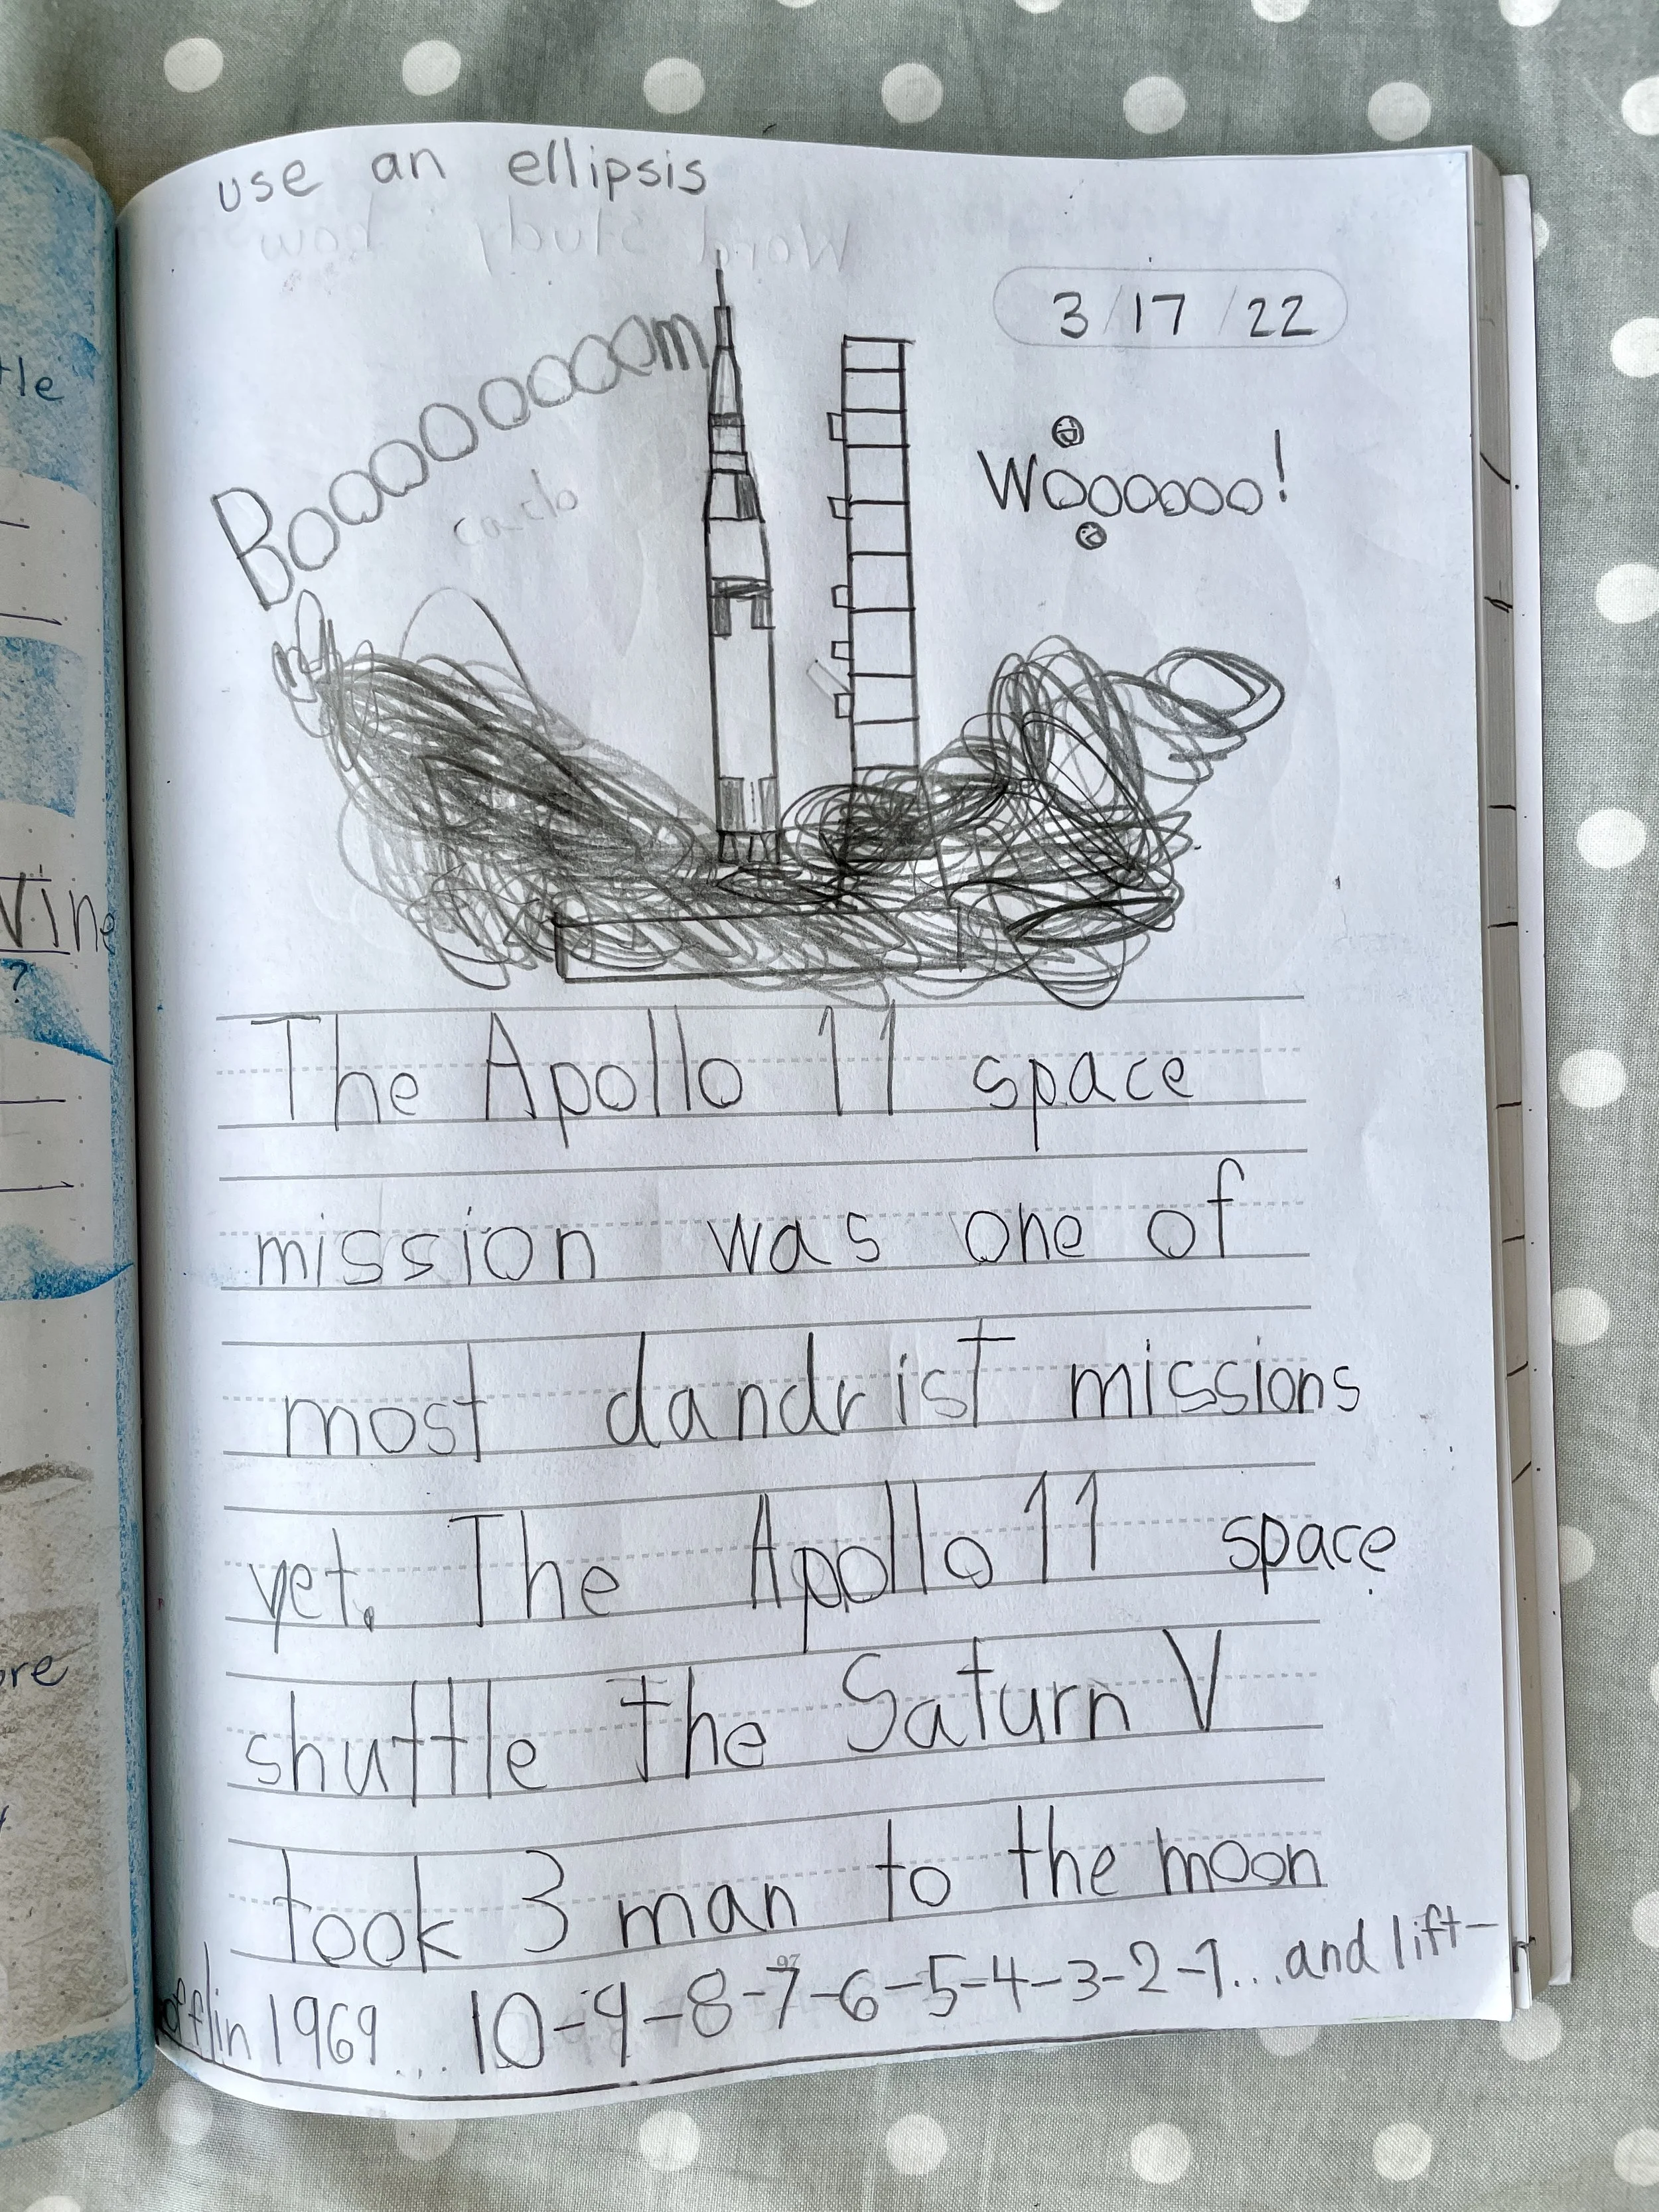 use an ellipsis
3/17/22
Boooooooooom
Wooooooo!
The Apollo 11 space
mission was one of
most dandrist missions
yet. The Apollo 11 space
shuttle the Saturn V
took 3 man to the moon
in 1969... 10-9-8-7-6-5-4-3-2-1...and lift-
off
tle
Vine
?
ore